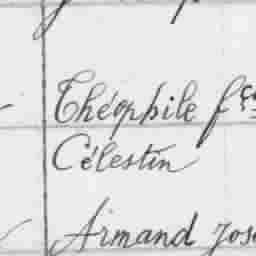 Théophile fço
Célestin
Armand Jose